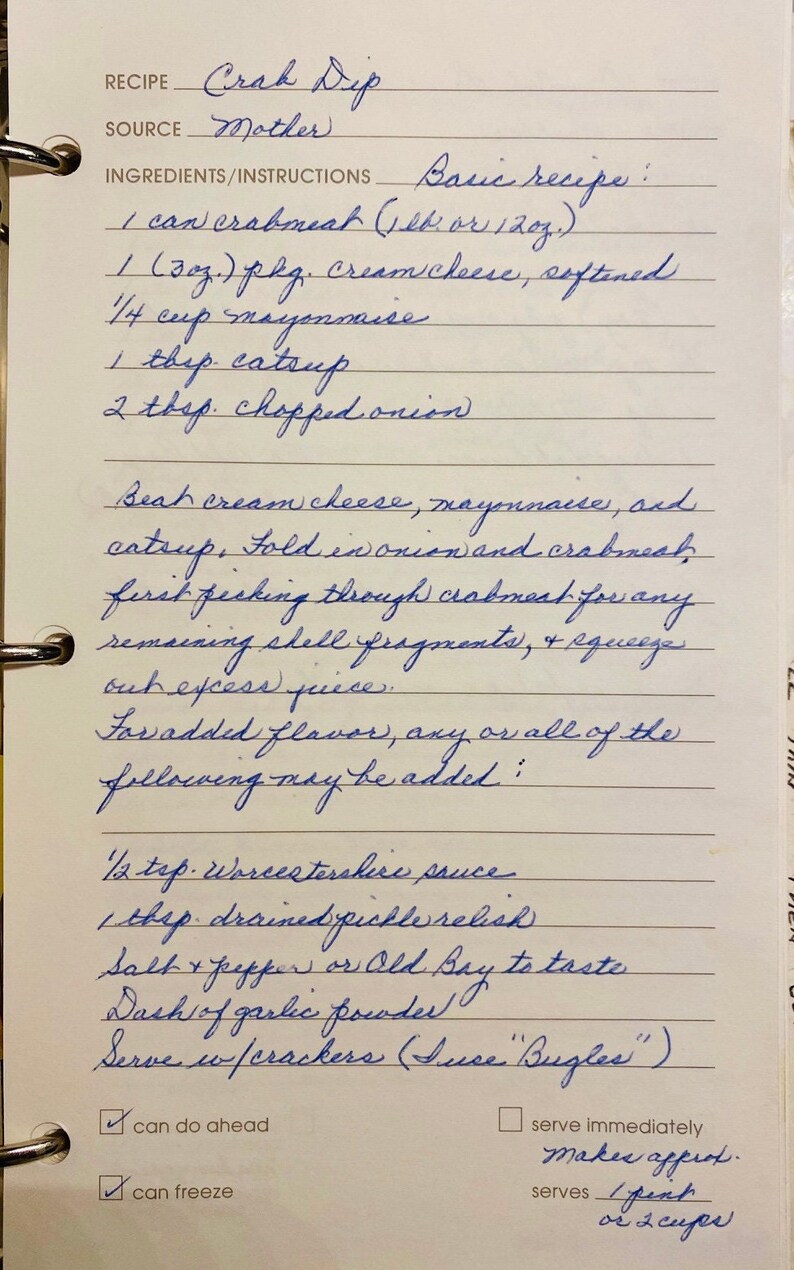 RECIPE Crab Dip
SOURCE Mother
INGREDIENTS/INSTRUCTIONS Basic recipe:
1 can crabmeat (1 lb. or 12oz.)
1 (3oz.) pkg. cream cheese, softened
1/4 cup mayonnaise
1 tbsp. catsup
2 tbsp. chopped onion
Beat cream cheese, mayonnaise, and
catsup. Fold in onion and crabmeat,
first picking through crabmeat for any
remaining shell fragments, & squeeze
out excess juice.
For added flavor, any or all of the
following may be added:
1/2 tsp. Worcestershire sauce
1 tbsp. drained pickle relish
Salt & pepper or Old Bay to taste
Dash of garlic powder
Serve w/crackers (I use "Bugles")
✓ can do ahead
serve immediately
Makes approx.
✓ can freeze
serves 1 pint
or 2 cups